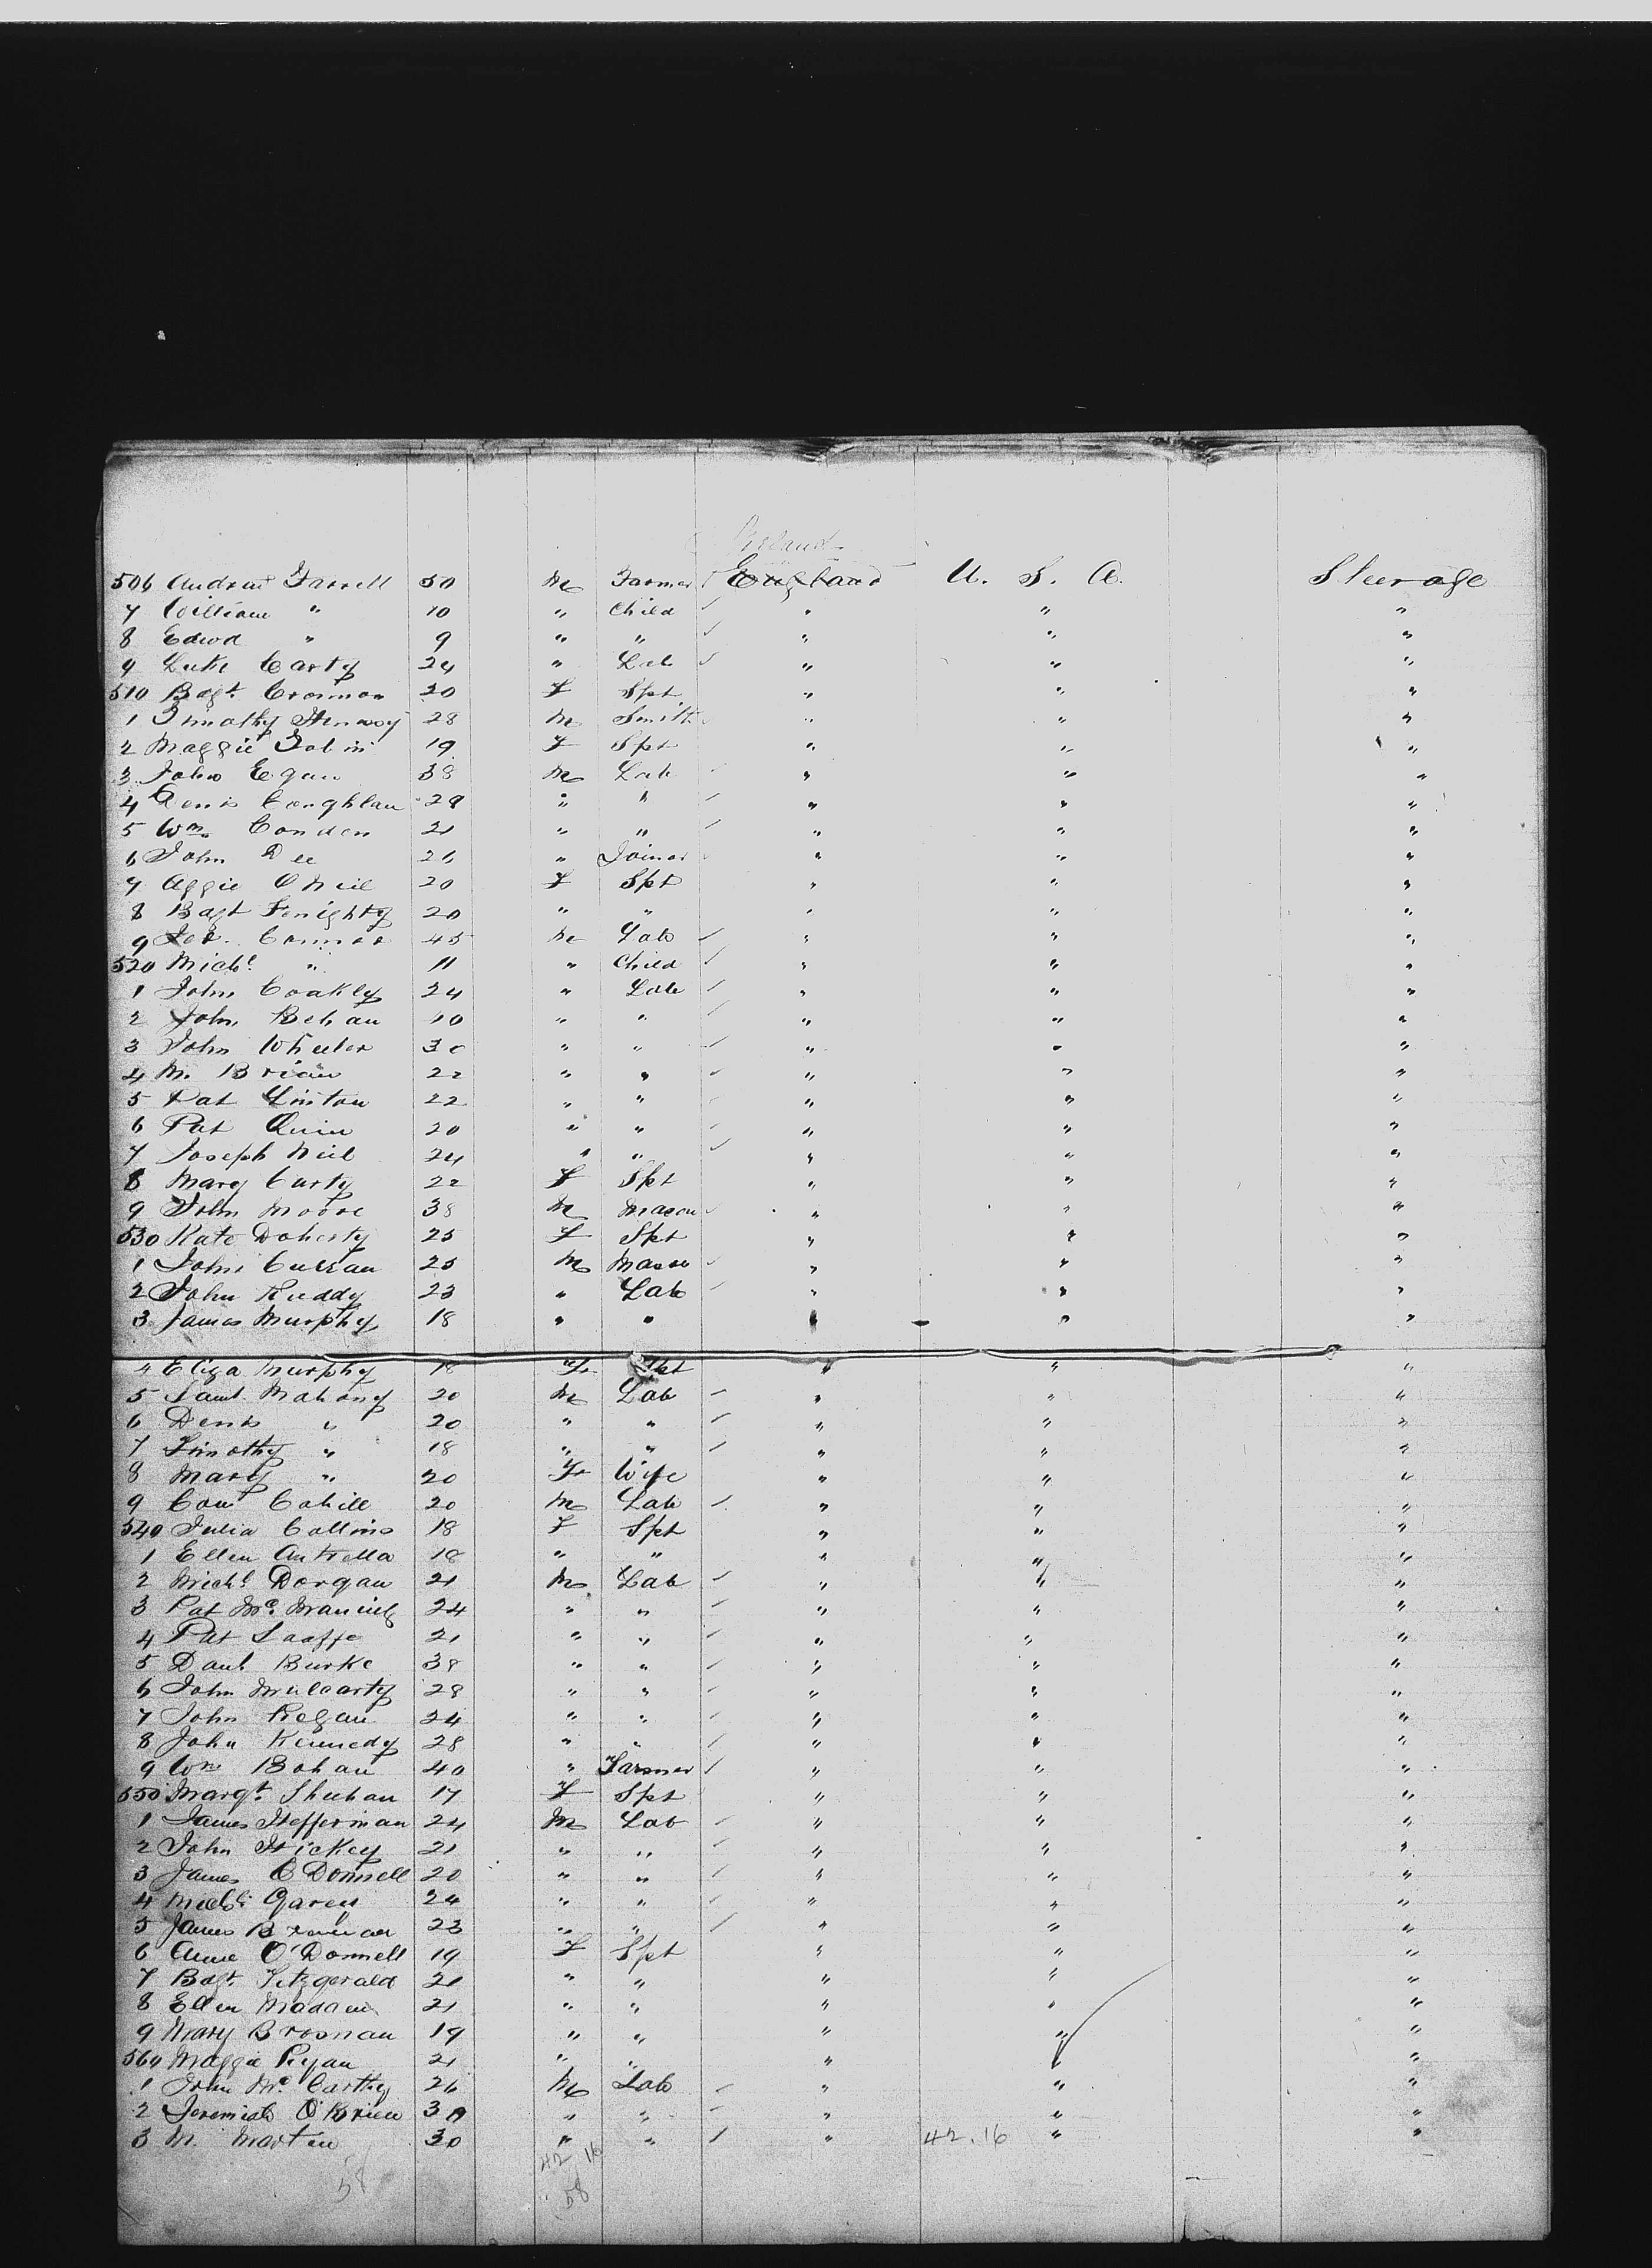 Ireland
506 Andrew Farrell 50 M Farmer England U. S. A. Steerage
7 William " 10 " Child " " "
8 Edwd " 9 " " " " "
9 Luke Carty 24 " Lab " " "
510 Bdgt. 20 F Spt " " "
1 Timothy 28 M Smith " " "
2 Maggie Tobin 19 F Spt " " "
3 John Egan 38 M Lab " " "
4 Denis Coughlan 29 " " " " "
5 Wm. Conden 21 " " " " "
6 John Dee 26 " Joiner " " "
7 Aggie O Neil 20 F Spt " " "
8 Bdgt 20 " " " " "
9 Connor 45 M Lab " " "
520 Michl. " 11 " Child " " "
1 John Coakly 24 " Lab " " "
2 John Behan 10 " " " " "
3 John Wheeler 30 " " " " "
4 M. Brian 22 " " " " "
5 Pat 22 " " " " "
6 Pat Quin 20 " " " " "
7 Joseph Neil 24 " " " " "
8 Mary Carty 22 F Spt " " "
9 John Moore 38 M Mason " " "
530 Kate Doherty 25 F Spt " " "
1 John Curran 25 M Mason " " "
2 John Ruddy 23 " Lab " " "
3 James Murphy 18 " " " " "
4 Eliza Murphy 18 F Spt " " "
5 Saml. Mahony 20 M Lab " " "
6 Denis " 20 " " " " "
7 Timothy " 18 " " " " "
8 Mary " 20 F Wife " " "
9 Con Cahill 20 M Lab " " "
540 Julia Collins 18 F Spt " " "
1 Ellen 18 " " " " "
2 Michl Dorgan 21 M Lab " " "
3 Pat Mc. 24 " " " " "
4 Pat 21 " " " " "
5 Danl Burke 38 " " " " "
6 John Mulcarty 28 " " " " "
7 John Regan 24 " " " " "
8 John Kennedy 28 " " " " "
9 Wm Bohan 40 " Farmer " " "
550 Margt. Sheehan 17 F Spt " " "
1 James Hefferman 24 M Lab " " "
2 John Hickey 21 " " " " "
3 James O Donnell 20 " " " " "
4 Michl. 24 " " " " "
5 James 23 " " " " "
6 Anne O'Donnell 19 F Spt " " "
7 Bdgt. Fitzgerald 21 " " " " "
8 Ellen Madden 21 " " " " "
9 Mary Brosnan 19 " " " " "
560 Maggie Ryan 21 " " " " "
1 John Mc. Carthy 26 M Lab " " "
2 Jeremiah O'Brien " " " " "
3 M. Marten 30 " " " 42.16 " "
42 16
58 58